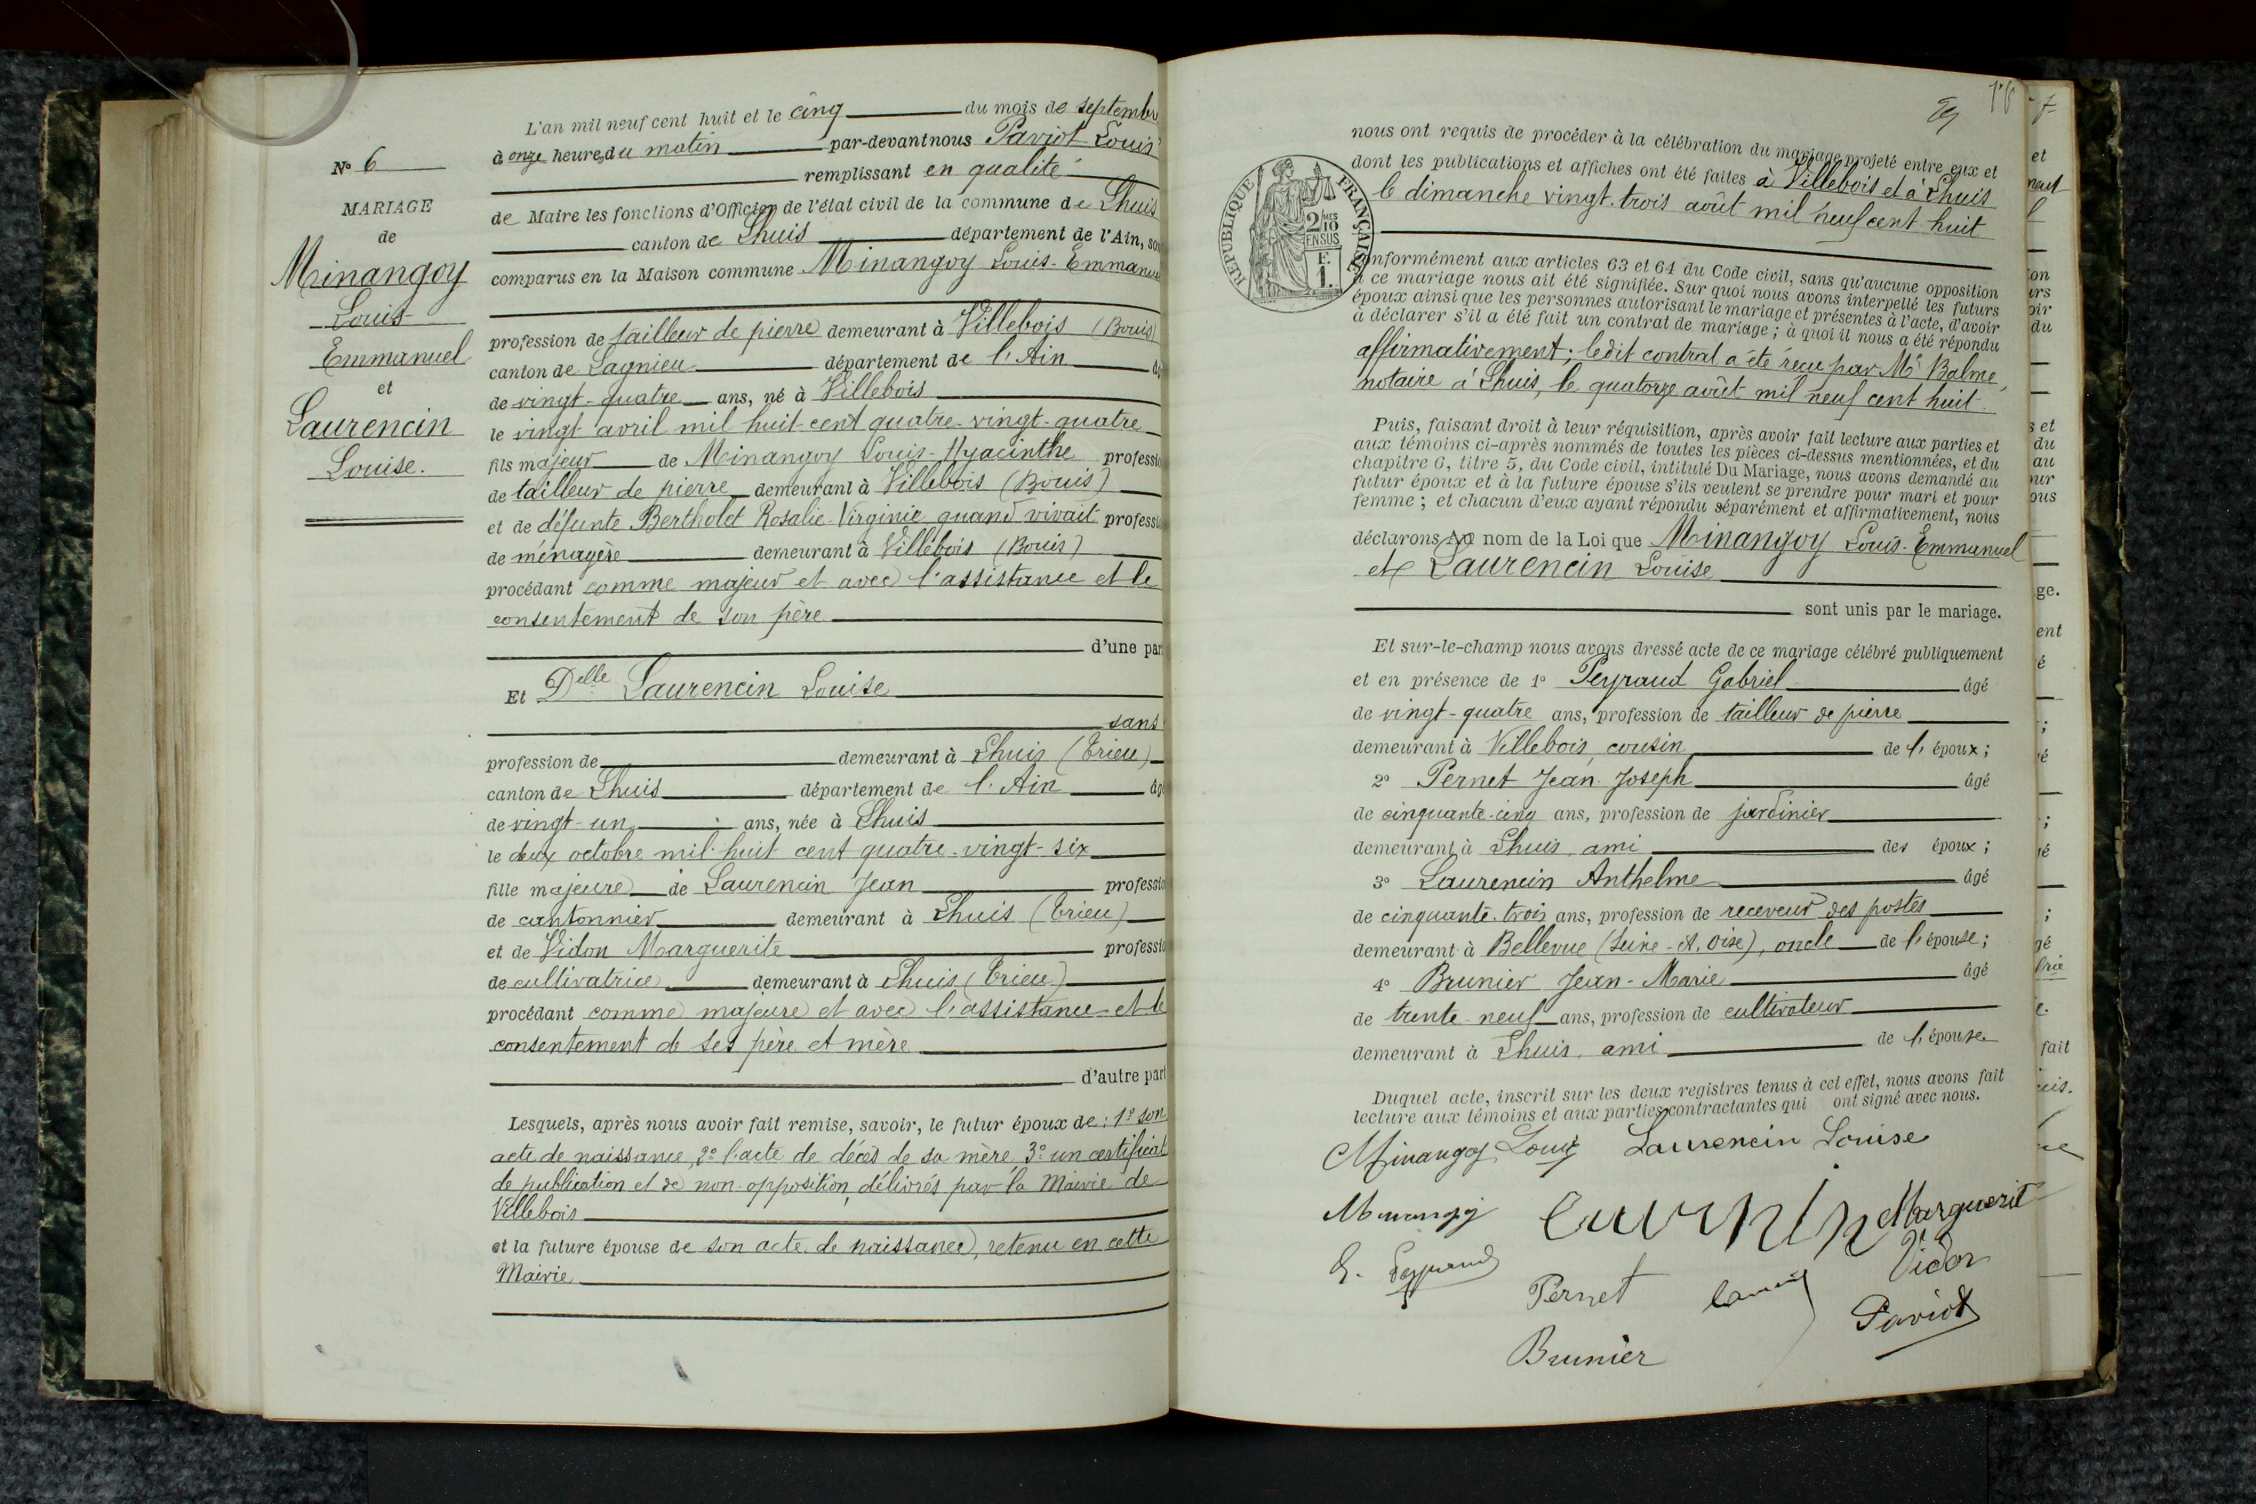 N° 6
MARIAGE
de
Minangoy
Louis
Emmanuel
et
Laurencin
Louise.
L'an mil neuf cent huit et le cinq du mois de septembre
à onze heures du matin par-devant nous Paviot Louis
remplissant en qualité
de Maire les fonctions d'Officier de l'état civil de la commune de Lhuis
canton de Lhuis département de l'Ain, sont
comparus en la Maison commune Minangoy Louis-Emmanuel
profession de tailleur de pierre demeurant à Villebois (Bouis)
canton de Lagnieu département de l'Ain âgé
de vingt-quatre ans, né à Villebois
le vingt avril mil huit cent quatre-vingt-quatre
fils majeur de Minangoy Louis-Hyacinthe profession
de tailleur de pierre demeurant à Villebois (Bouis)
et de défunte Bertholet Rosalie-Virginie quand vivait profession
de ménagère demeurant à Villebois (Bouis)
procédant comme majeur et avec l'assistance et le
consentement de son père
d'une part
Et Delle Laurencin Louise
sans
profession de demeurant à Lhuis (Crieu)
canton de Lhuis département de l'Ain âgé
de vingt-un ans, née à Lhuis
le deux octobre mil huit cent quatre-vingt-six
fille majeure de Laurencin Jean profession
de cantonnier demeurant à Lhuis (Crieu)
et de Vidon Marguerite profession
de cultivatrice demeurant à Lhuis (Crieu)
procédant comme majeure et avec l'assistance et le
consentement de ses père et mère
d'autre part
Lesquels, après nous avoir fait remise, savoir, le futur époux de : 1° son
acte de naissance, 2° l'acte de décès de sa mère 3° un certificat
de publication et de non-opposition, délivrés par la Mairie de
Villebois
et la future épouse de son acte de naissance, retenu en cette
Mairie
nous ont requis de procéder à la célébration du mariage projeté entre eux et
dont les publications et affiches ont été faites à Villebois et à Lhuis
le dimanche vingt-trois août mil neuf cent huit
REPUBLIQUE FRANÇAISE
2/10 EN SUS
F. 1.
Conformément aux articles 63 et 64 du Code civil, sans qu'aucune opposition
à ce mariage nous ait été signifiée. Sur quoi nous avons interpellé les futurs
époux ainsi que les personnes autorisant le mariage et présentes à l'acte, d'avoir
à déclarer s'il a été fait un contrat de mariage ; à quoi il nous a été répondu
affirmativement ; ledit contrat a été reçu par Me Balme,
notaire à Lhuis, le quatorze août mil neuf cent huit.
Puis, faisant droit à leur réquisition, après avoir fait lecture aux parties et
aux témoins ci-après nommés de toutes les pièces ci-dessus mentionnées, et du
chapitre 6, titre 5, du Code civil, intitulé Du Mariage, nous avons demandé au
futur époux et à la future épouse s'ils veulent se prendre pour mari et pour
femme ; et chacun d'eux ayant répondu séparément et affirmativement, nous
déclarons Au nom de la Loi que Minangoy Louis-Emmanuel
et Laurencin Louise
sont unis par le mariage.
Et sur-le-champ nous avons dressé acte de ce mariage célébré publiquement
et en présence de 1° Peyraud Gabriel âgé
de vingt-quatre ans, profession de tailleur de pierre
demeurant à Villebois, cousin de l'époux ;
2° Pernet Jean-Joseph âgé
de cinquante-cinq ans, profession de jardinier
demeurant à Lhuis, ami des époux ;
3° Laurencin Anthelme âgé
de cinquante-trois ans, profession de receveur des postes
demeurant à Bellevue (Seine-et-Oise), oncle de l'épouse ;
4° Brunier Jean-Marie âgé
de trente-neuf ans, profession de cultivateur
demeurant à Lhuis, ami de l'épouse
Duquel acte, inscrit sur les deux registres tenus à cet effet, nous avons fait
lecture aux témoins et aux parties contractantes qui ont signé avec nous.
Minangoy Louis Laurencin Louise
Minangoy Marguerite
Vidon
G. Peyraud
Pernet
Paviot
Brunier